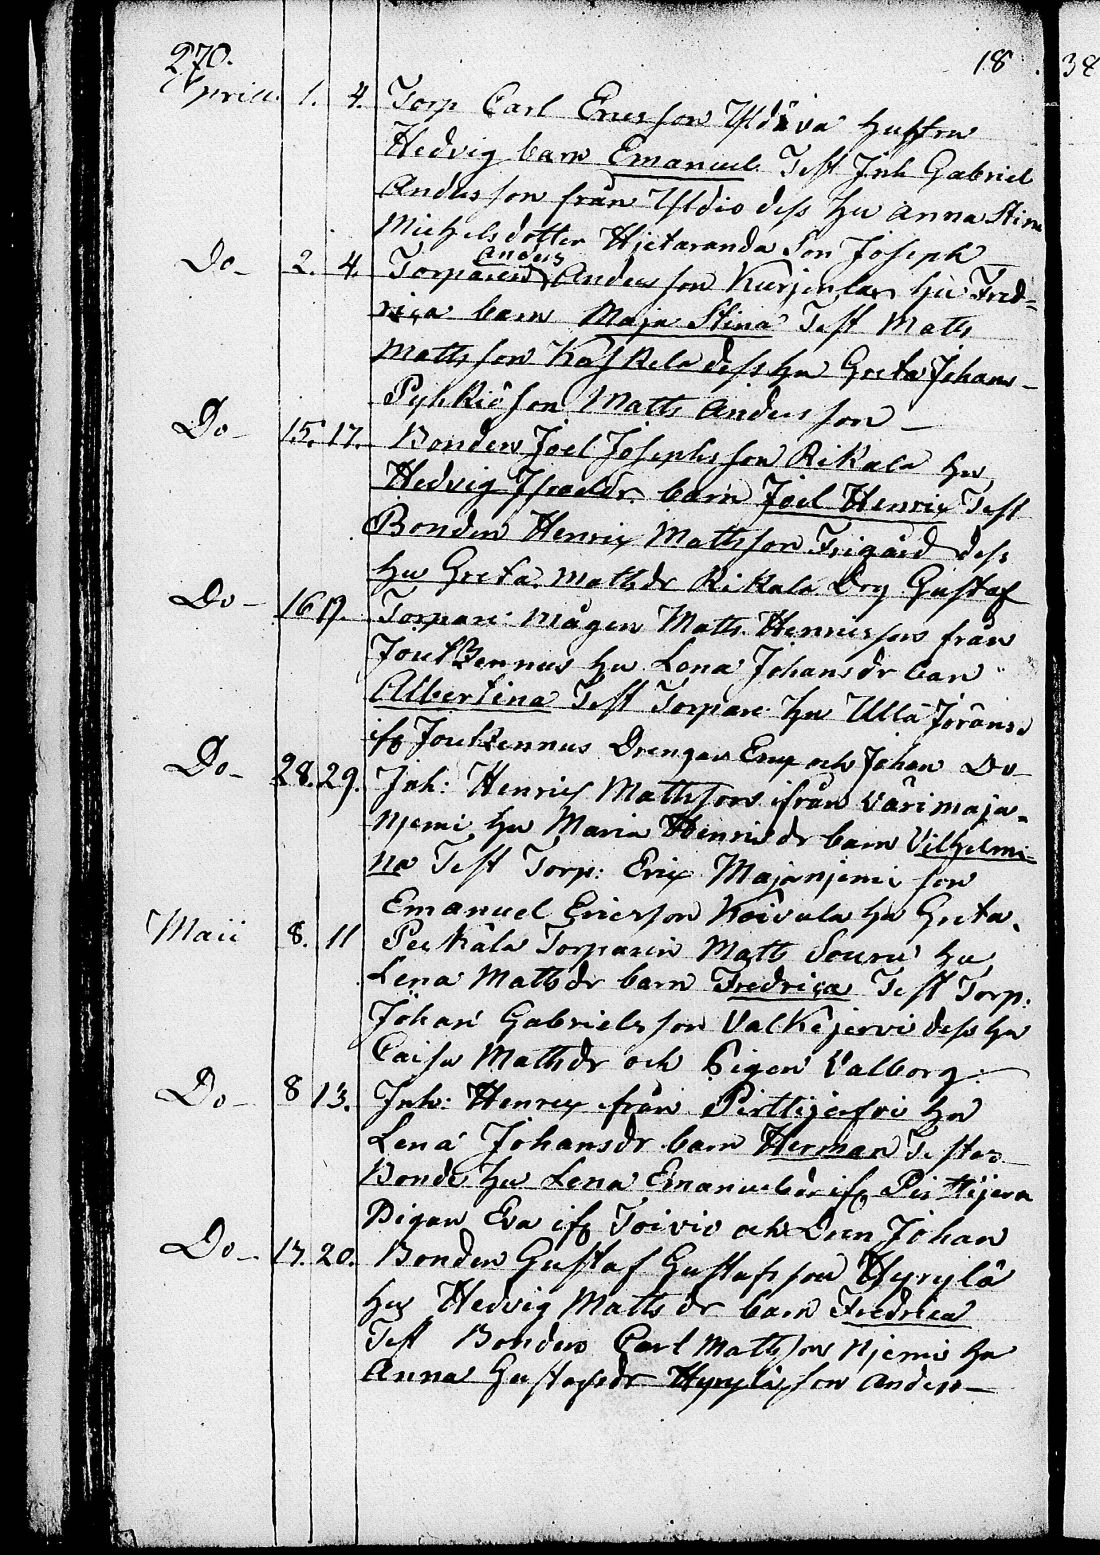 270. 18 . 38
Aprill. 1. 4. Torp Carl Ericsson Hustru
Hedvig barn Emanuel Test Inh Gabriel
Andersson från dess hu Anna Stina
Michelsdotter Hjetaranda Son Joseph
Anders
Do 2. 4. Torparen Andersson Kurjenlax hu Fred=
rica barn Maja Stina Test Matts
Mattsson dess hu Greta Johans
Pyhkiö son Matts Andersson
Do 15. 17. Bonden Joel Josephsson Rikala hu
Hedvig Israelsdr barn Joel Henrix Test
Bonden Henrix Mattsson Frigård dess
hu Greta Mattsdr Rikala Drg Gustaf
Do 16 17. Torpare mågen Matts Henricsson från
hu Lena Johansdr barn
Albertina Test Torpare hu Ulla Jöransd
ifr Drengar Erix och Johan Do
Do 28. 29. Inh: Henrix Mattsson ifrån Värimaja-
njemi, hu Maria Henricsdr barn Vilhelmi-
na Test Torp: Erix Majanjemi son
Emanuel Ericsson Koivula hu Greta
Maii 8. 11 Peekälä Torparen Matts Souru hu
Lena Mattsdr barn Fredrica Test Torp:
Johan Gabrielsson Valkejervi dess hu
Caisa Mattsdr och Pigan Valborg
Do 8 13. Inh: Henrix från Pirttijerfvi hu
Lena Johansdr barn Herman Testes
Bonde hu Lena Emanuelsdr ifr
Pigan Eva ifr Toivio och Dren Johan
Do 17. 20. Bonden Gustaf Gustafsson Hyrylä
hu Hedvig Mattsdr barn Fredrica
Test Bonden Carl Mattsson Njemi hu
Anna Gustafsdr Hyrylä son Anders